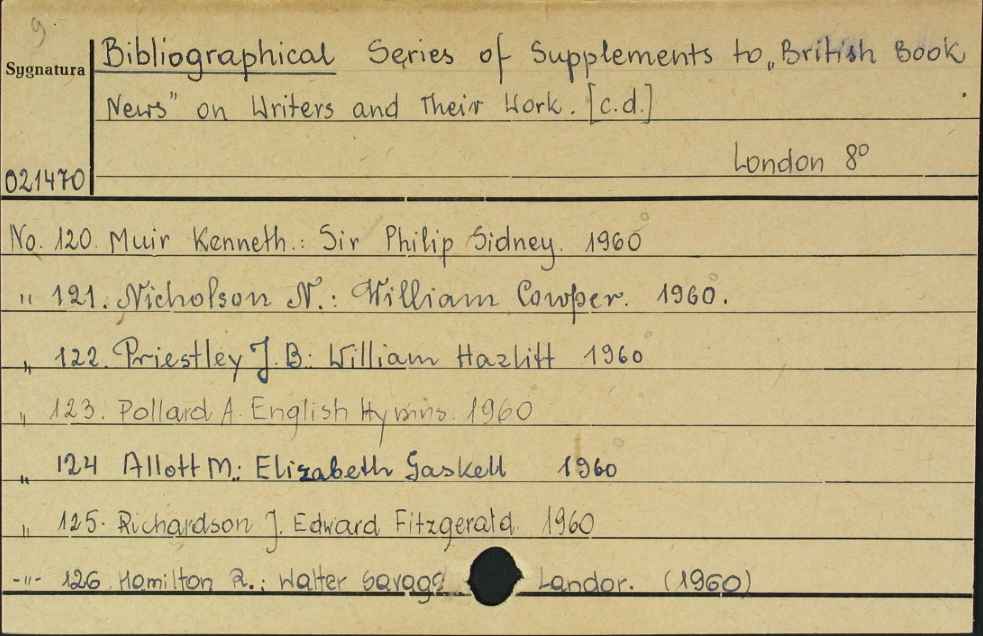 9.
Bibliographical Series of Supplements to „British Book
Sygnatura
News" on Writers and Their Work. [c.d.]
London 8º
021470
No. 120. Muir Kenneth.: Sir Philip Sidney. 1960
" 121. Nicholson N.: William Cowper. 1960.
" 122. Priestley J.B.: William Hazlitt 1960
" 123. Pollard A. English Hymns. 1960
" 124 Allott M.: Elizabeth Gaskell 1960
" 125. Richardson J. Edward Fitzgerald. 1960
-"- 126. Hamilton R.: Walter Savage Landor. (1960)